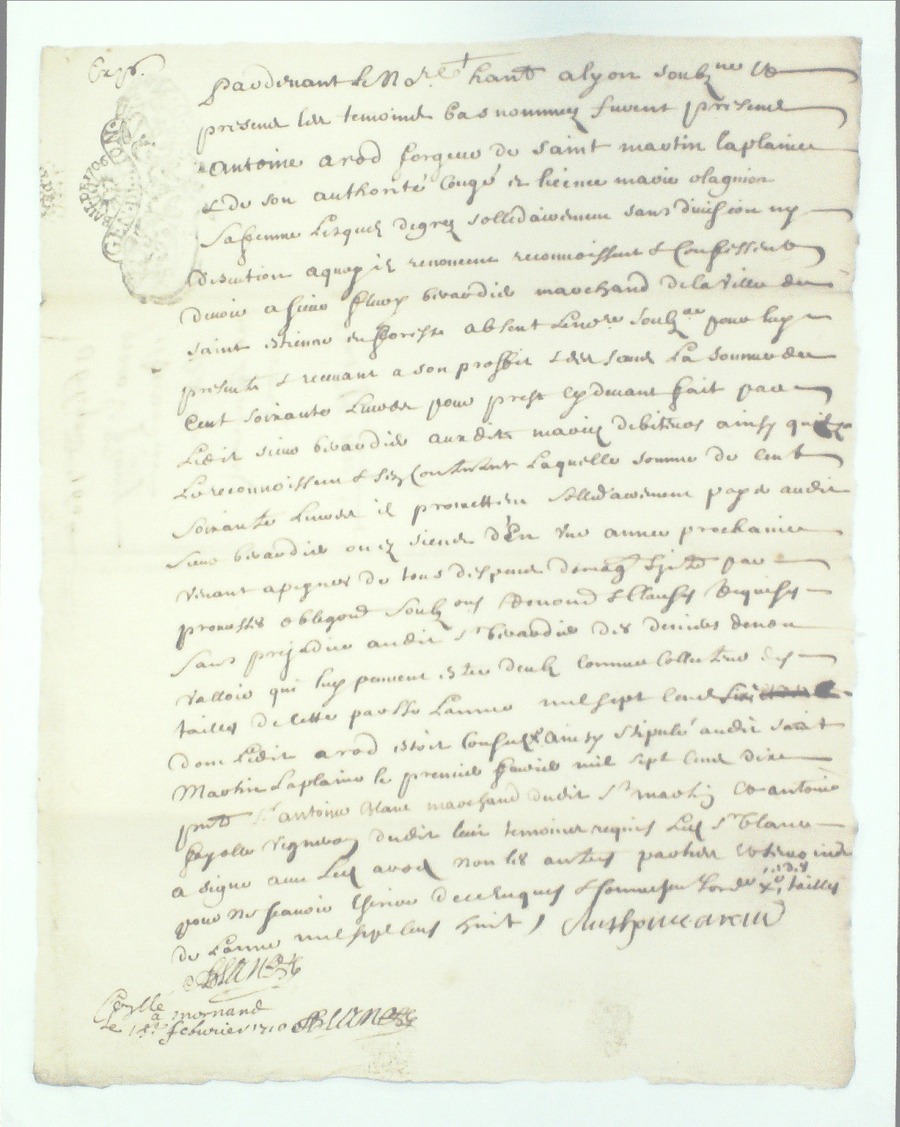 Pardevant le No.re hantt a lyon soubz.ne &
presens les temoins bas nommez furent presens
Antoine arod forgeur de saint martin laplaine
& de son authorité congé et licence marie olagnion
sa femme lesquels de grez sollidairement sans division ny
discution a quoy ils renoncent reconnoissent & confessent
devoir a sieur fleury berardier marchand de la ville de
saint etienne en forests absent le no.re soubz.ne pour luy
present & recevant a son proffit & des siens la somme de
cent soixante livres pour prest cydevant fait par
ledit sieur berardier auxdits mariez debiteurs ainsy quils
le reconnoissent & s'en contentent laquelle somme de cent
soixante livres ils promettent sollidairement payer audit
sieur berardier ou es siens d'En une annee prochaine
venant a peyne de tous despens domag.
promesses obligons soubz ons Renond & clauses Requises
sans prejudice audit s.r berardier des deniers
valloir qui luy peuvent estre deubz comme collecteur des
tailles de cette parsse l'annee mil sept cens
dont ledit arod estoit consul ainsy stipulé audit saint
Martin laplaine le premier febvrier mil sept cens dix
pntt s.r antoine blanc marchand dudit s.t martin et antoine
fayolle vigneron dudit lieu temoins requis led s.r blanc
a signé avec led arod non les autres parties et temoins
pour ne scavoir ecrire de ce enquis & sommes tailles
de l'annee mil sept cens huit / Anthoine arod
Blanc
Con.lle
a mornand
le 18 febvrier 1710 Blanc
GEN. DE LYON